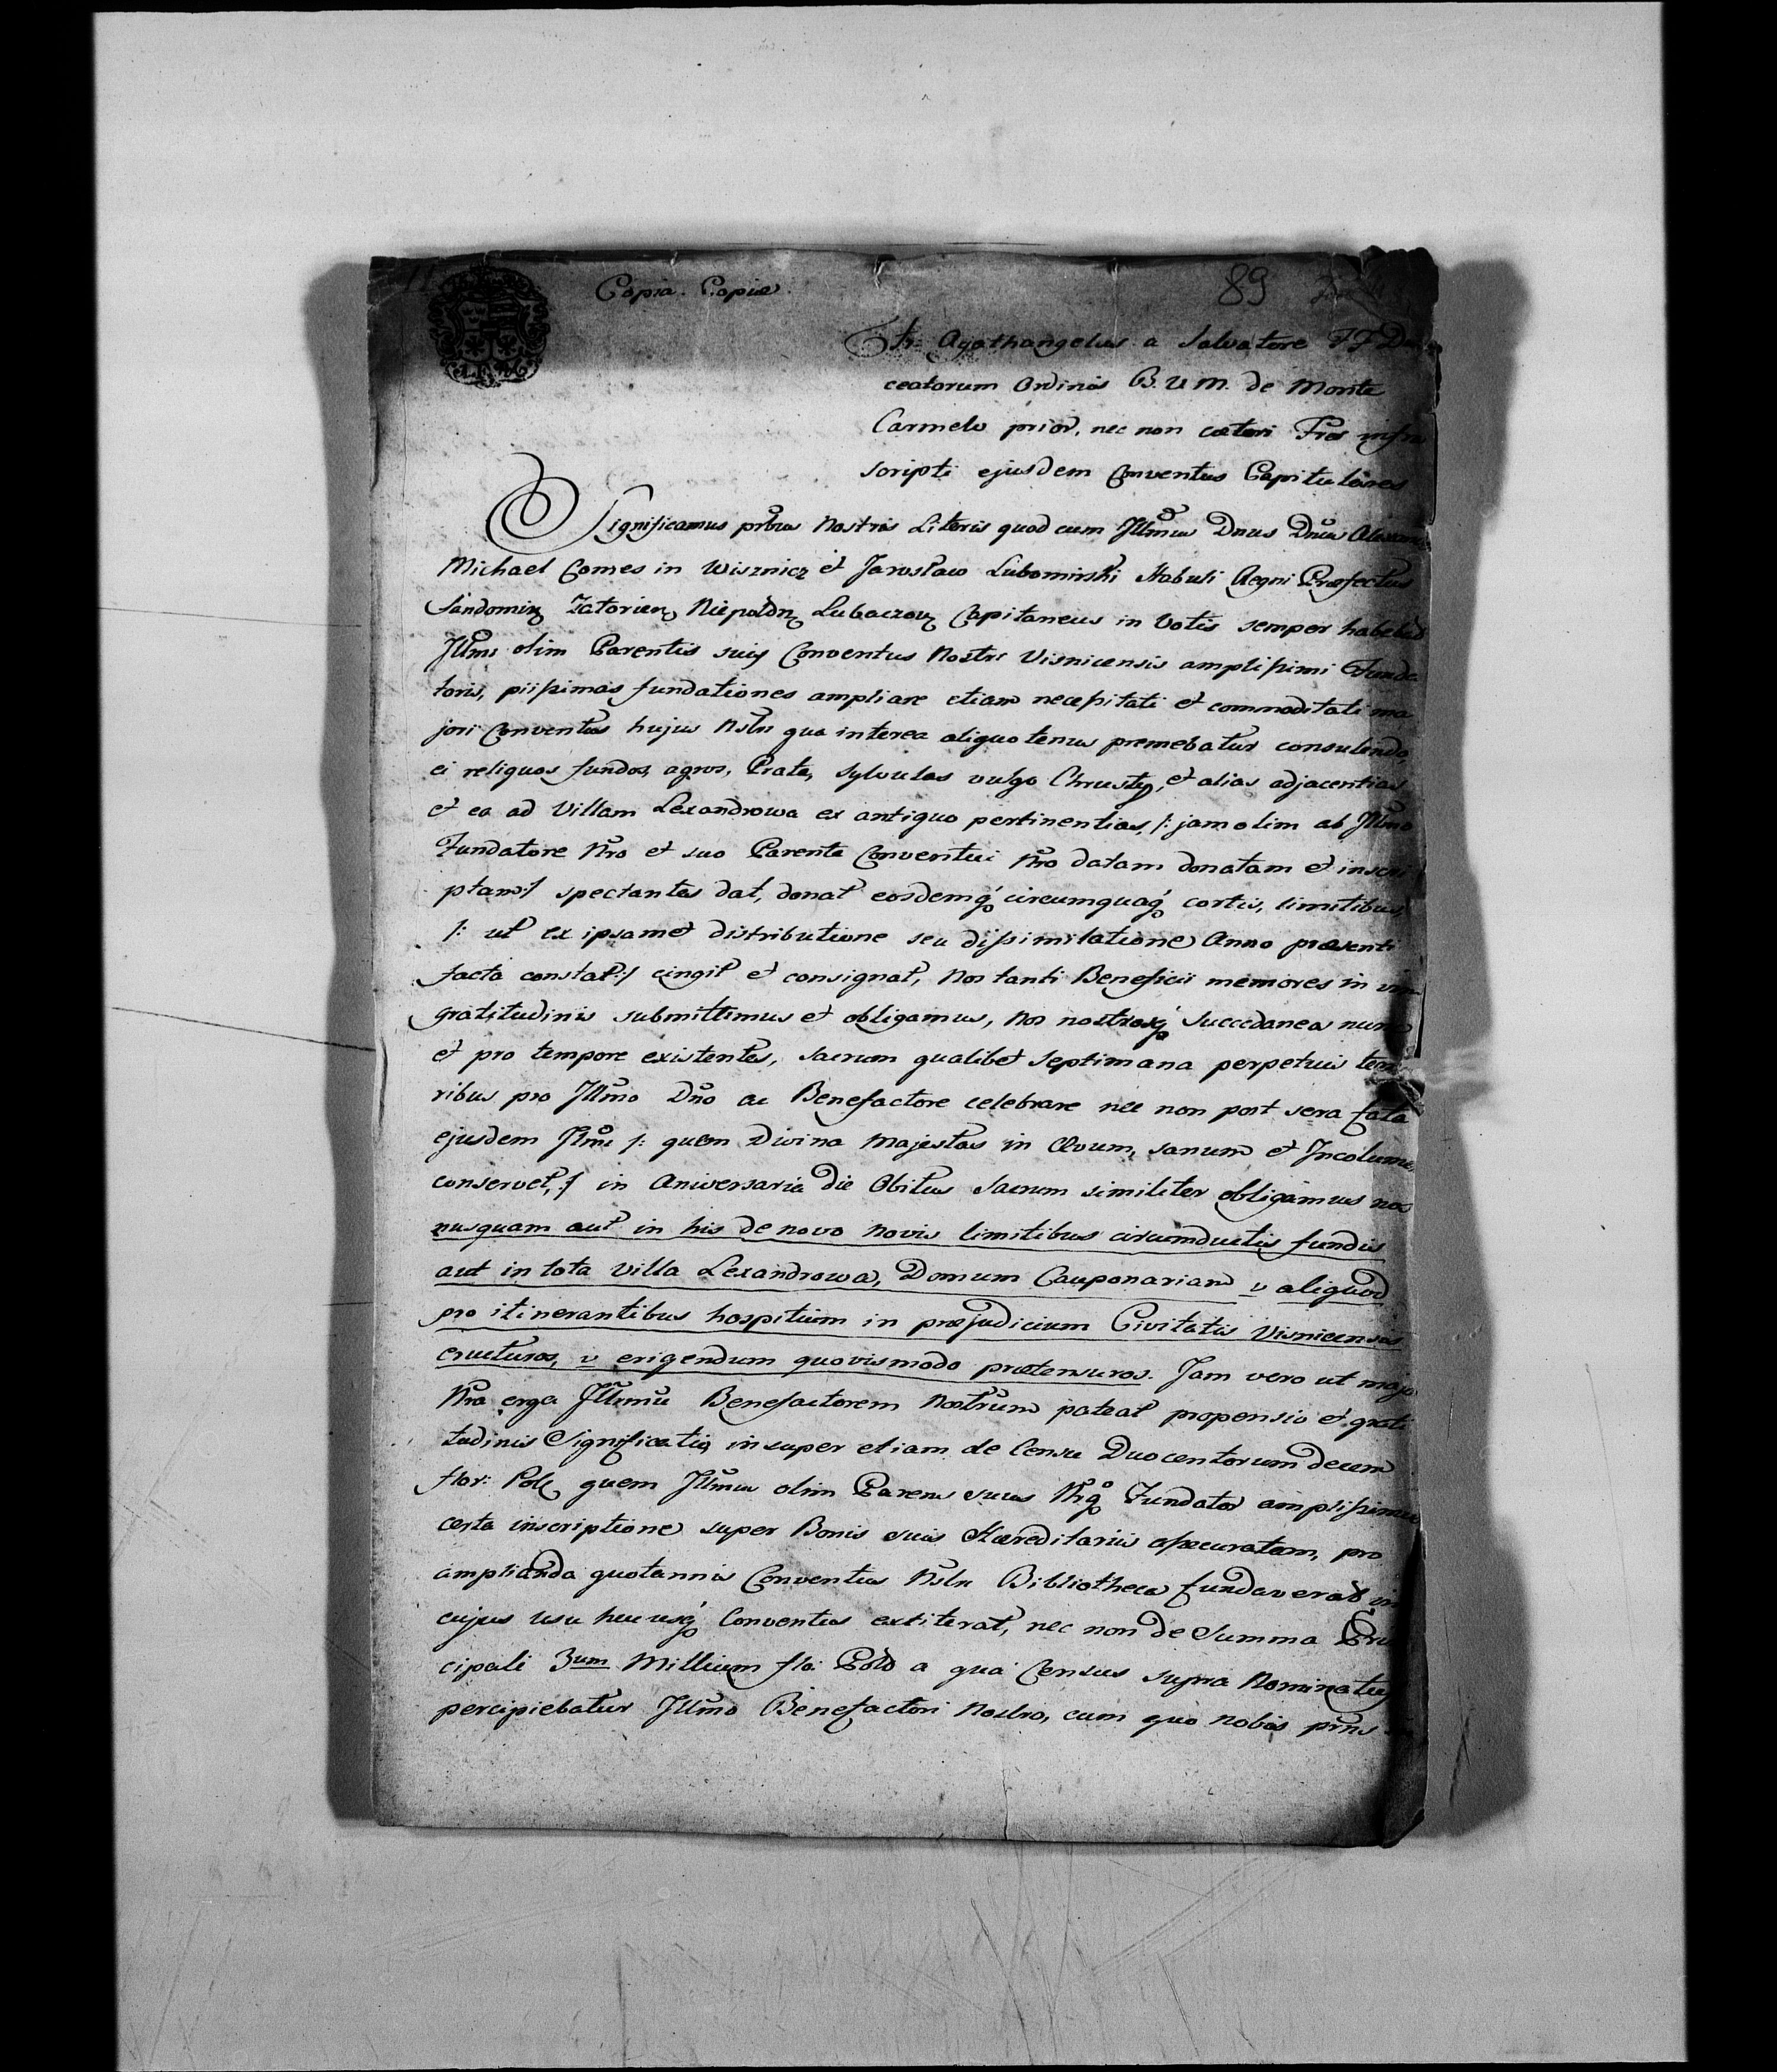 Copia. Copiæ. 89
Fr. Agathangelus a Salvatore FF
ceatorum Ordinis B. V. M. de Monte
Carmelo prior, nec non cæteri Fres infra
scripti ejusdem Conventus Capitulares
Significamus pñtbus Nostris Literis quod cum Illmus Dnus Dnus
Michael Comes in Wisznicz et Jarosław Lubomirski Stabuli Regni Præfectus
Sandomirz Zatorien Niepołom Lubaczow Capitaneus in Votis semper
Illmi olim Parentis sui, Conventus Nostri Visnicensis amplissimi Funda
toris, piissimas fundationes ampliare etiam necessitati et commoditati ma
jori Conventus hujus Nstri qua interea aliquotenus premebatur consulendo,
ei reliquos fundos, agros, Prata, Sylvulas vulgo Chrusty, et alias adjacentias
et ea ad Villam Lexandrowa ex antiquo pertinentias, /: jam olim ab Illmo
Fundatore Nro et suo Parente Conventui Nro datam donatam et inscri
ptam:/ spectantes dat, donat eosdemq circumquaq certis, limitibus,
/: ut ex ipsamet distributione seu dissimilatione Anno præsenti
facta constat:/ cingit et consignat, Nos tanti Beneficii memores in vim
gratitudinis submittimus et obligamus, nos nostrosq Succedaneos nunc
et pro tempore existentes, sacrum qualibet Septimana perpetuis
ribus pro Illmo Dno ac Benefactore celebrare nec non post sera fata
ejusdem Illmi /: quem Divina Majestas in Ævum, sanum et Incolumem
conservet,:/ in Aniversaria die Obitus Sacrum similiter obligamus nos
nusquam aut in his de novo novis limitibus circumductis fundis
aut in tota Villa Lexandrowa, Domum Cauponariam v aliquod
pro itinerantibus hospitium in præjudicium Civitatis Visnicensis
eructuros, v erigendum quovismodo prætensuros. Jam vero ut major
Nra erga Illmũ Benefactorem Nostrum pateat propensio et grati
tudinis Significatio, insuper etiam de Censu Duocentorum decem
flor: Pol quem Illmus olim Parens suus Nrq Fundator amplissimus
certa inscriptione super Bonis suis Hæreditariis assecuratum, pro
amplianda quotannis Conventus Nstri Bibliotheca fundaverat in
cujus usu hucusq Conventus extiterat, nec non de Summa Prin
cipali 3um Millium flo: Pol a qua Census supra Nominatus
percipiebatur Illmo Benefactori Nostro, cum quo nobis pñs